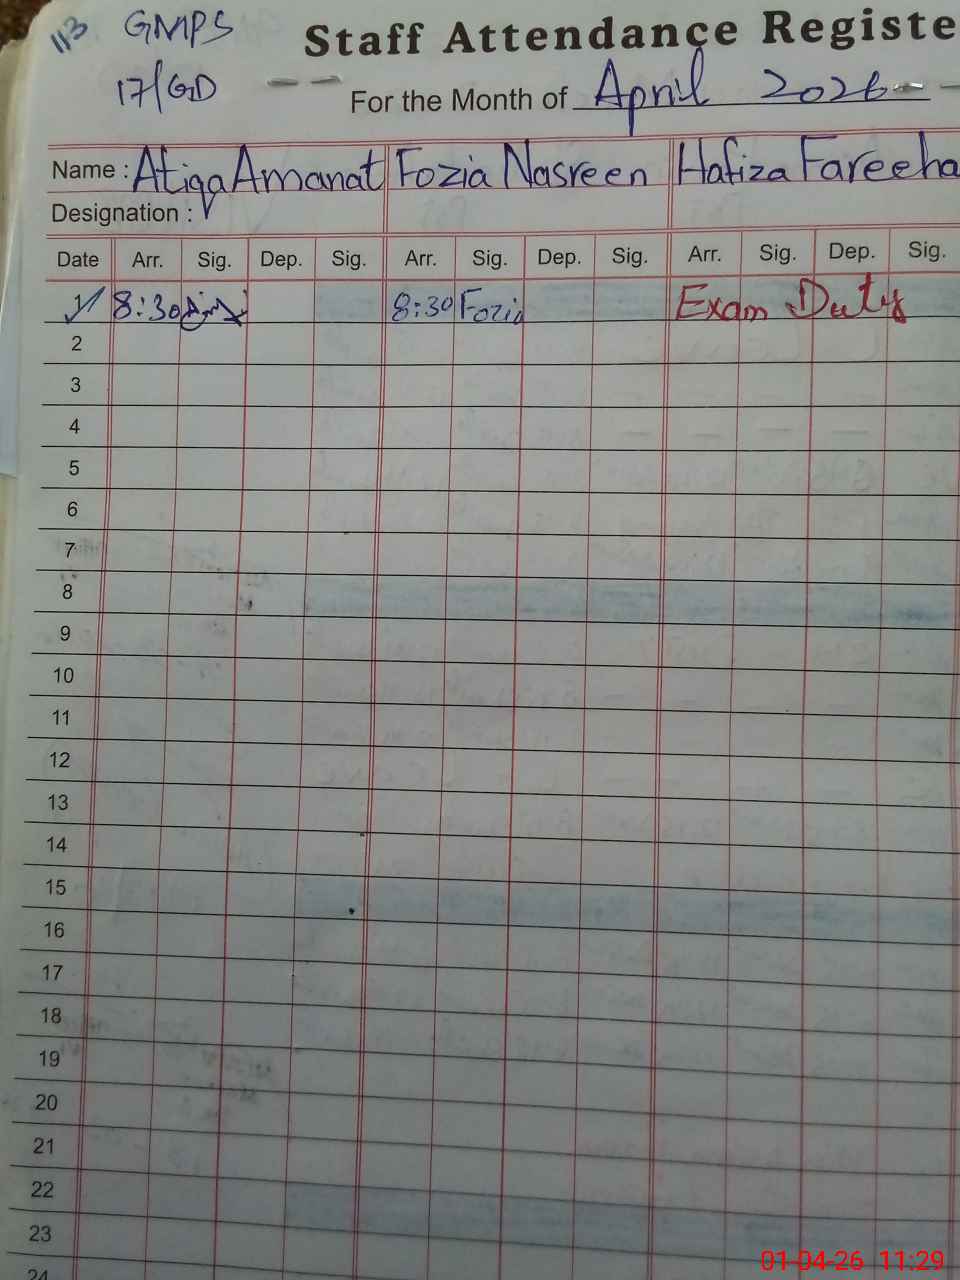 113 GMPS
17/GD
Staff Attendance Registe
For the Month of April 2026
Name : Atiqa Amanat Fozia Nasreen Hafiza Fareeha
Designation :
Date Arr. Sig. Dep. Sig. Arr. Sig. Dep. Sig. Arr. Sig. Dep. Sig.
1 8:30 8:30 Fozia Exam Duty
2
3
4
5
6
7
8
9
10
11
12
13
14
15
16
17
18
19
20
21
22
23
24
01-04-26 11:29